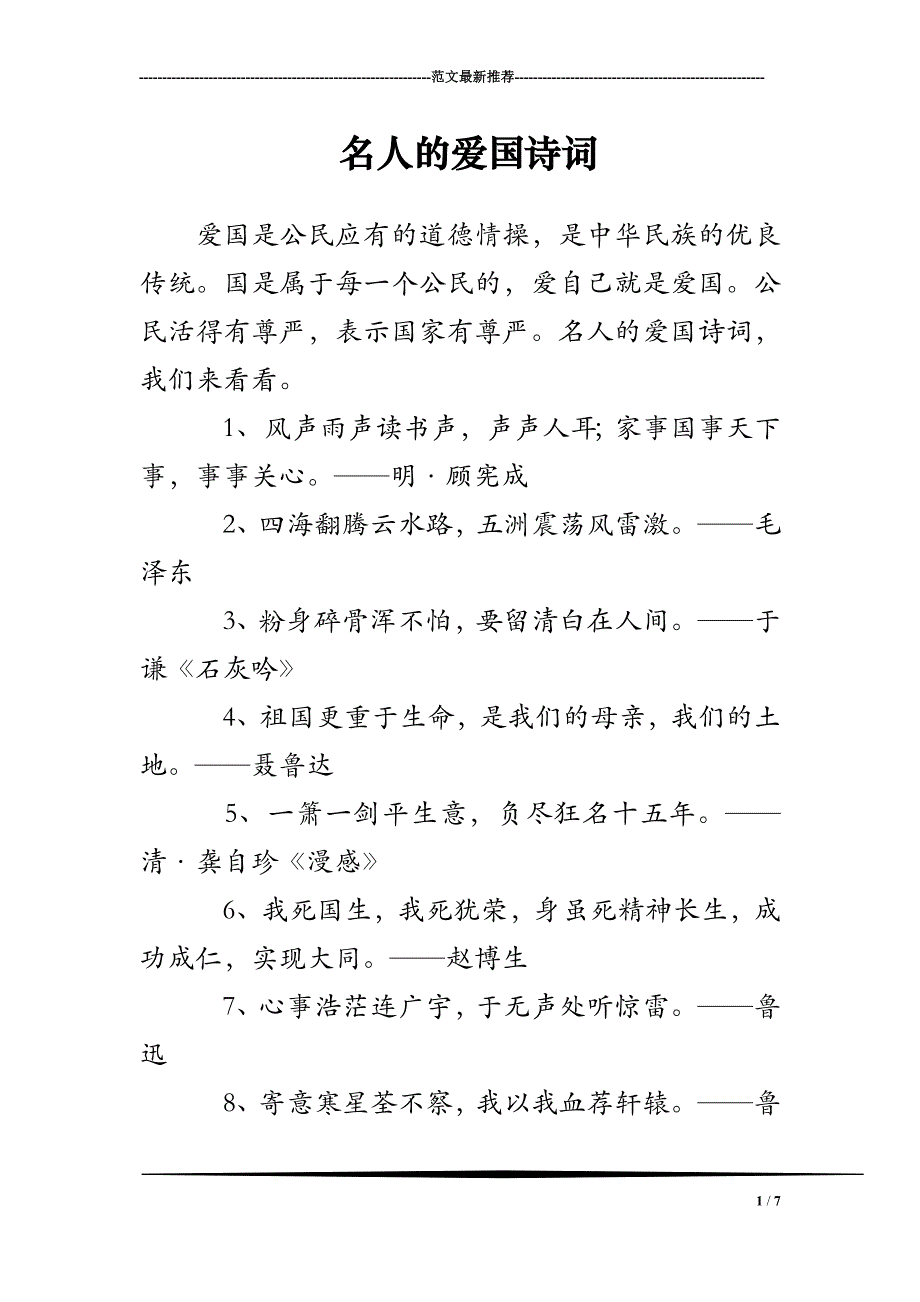 ---------------------------------------------------------------范文最新推荐------------------------------------------------------
名人的爱国诗词
爱国是公民应有的道德情操，是中华民族的优良
传统。国是属于每一个公民的，爱自己就是爱国。公
民活得有尊严，表示国家有尊严。名人的爱国诗词，
我们来看看。
1、风声雨声读书声，声声人耳；家事国事天下
事，事事关心。——明·顾宪成
2、四海翻腾云水路，五洲震荡风雷激。——毛
泽东
3、粉身碎骨浑不怕，要留清白在人间。——于
谦《石灰吟》
4、祖国更重于生命，是我们的母亲，我们的土
地。——聂鲁达
5、一箫一剑平生意，负尽狂名十五年。——
清·龚自珍《漫感》
6、我死国生，我死犹荣，身虽死精神长生，成
功成仁，实现大同。——赵博生
7、心事浩茫连广宇，于无声处听惊雷。——鲁
迅
8、寄意寒星荃不察，我以我血荐轩辕。——鲁
1 / 7